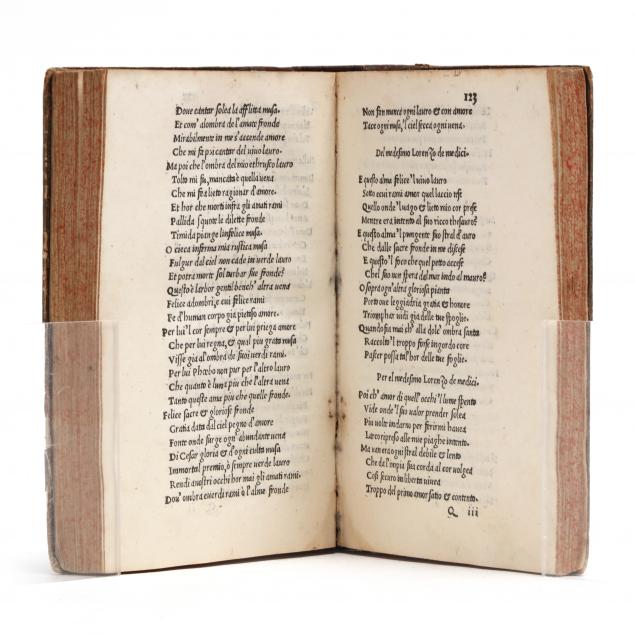 Doue cantar solea la afflitta musa.
Et com' a l'ombra de l'amate fronde
Mirabilmente in me s'accende amore
Che mi fa poi cantar del viuo lauro.
Ma poi che l'ombra del mio ethrusco lauro
Tolto mi fu, mancata è quella uena
Che mi fea lieto ragionar d'amore.
Et hor che morti infra gli amati rami
Pallida squote le dilette fronde
Timida piange l'infelice musa.
O cieca inferma mia rustica musa
Fulgur dal ciel non cade in uerde lauro
Et potra morte sol turbar sue fronde?
Questo è l'arbor gentil bench' altra uena
Felice adombri, e cui felice rami
Fe d'human corpo gia pietoso amore.
Per lui'l cor sempre & per lui priega amore
Che per lui regna, et qual piu grata musa
Visse gia al'ombra de suoi uerdi rami.
Per lui Phœbo non pur per l'altro lauro
Che quanto è luna piu che l'altra uena
Tanto queste ama piu che quelle fronde.
Felice sacre & gloriose fronde
Gratia data dal ciel pegno d'amore
Fonte onde surge ogn' abundante uena
Di Cesar gloria & d'ogni culta musa
Immortal premio, ò sempre uerde lauro
Rendi a nostri occhi hor mai gli amati rami.
Dou' ombra euerdi rami è l'alme fronde
123
Non fan manca ogni lauro & con amore
Tace ogni musa, 'l ciel secca ogni uena.
Del medesimo Lorenzo de medici.
E questo alma felice 'l uiuo lauro
Sotto e cui rami amor quel laccio tese
Quello onde 'l uago & lieto mio cor prese
Mentre era intento al suo ricco thesauro?
E questo alma 'l pungente suo stral d'auro
Che dalle sacre fronde in me discese
E questo 'l foco che quel petto accese
Che'l sol non spera dal mar indo al mauro?
O sopra ogn' altra gloriosa pianta
Porto oue leggiadria gratia & honore
Triomphar uidi gia delle tue spoglie.
Quando fia mai ch' alla dolc' ombra santa
Raccolto 'l troppo forse ingordo core
Pascer possa tal' hor delle tue foglie.
Per el medesimo Lorenzo de medici.
Poi ch' amor di quell' occhi 'l lume spento
Vide onde 'l suo ualor prender solea
Piu uolte indarno per ferirmi hauea
L'arco ripreso alle mie piaghe intento.
Ma uan era ogni stral debile & lento
Che da l'empia sua corda al cor uolgea
Cosi securo in liberta uiuea
Troppo del primo amor satio & contento.
Q iii